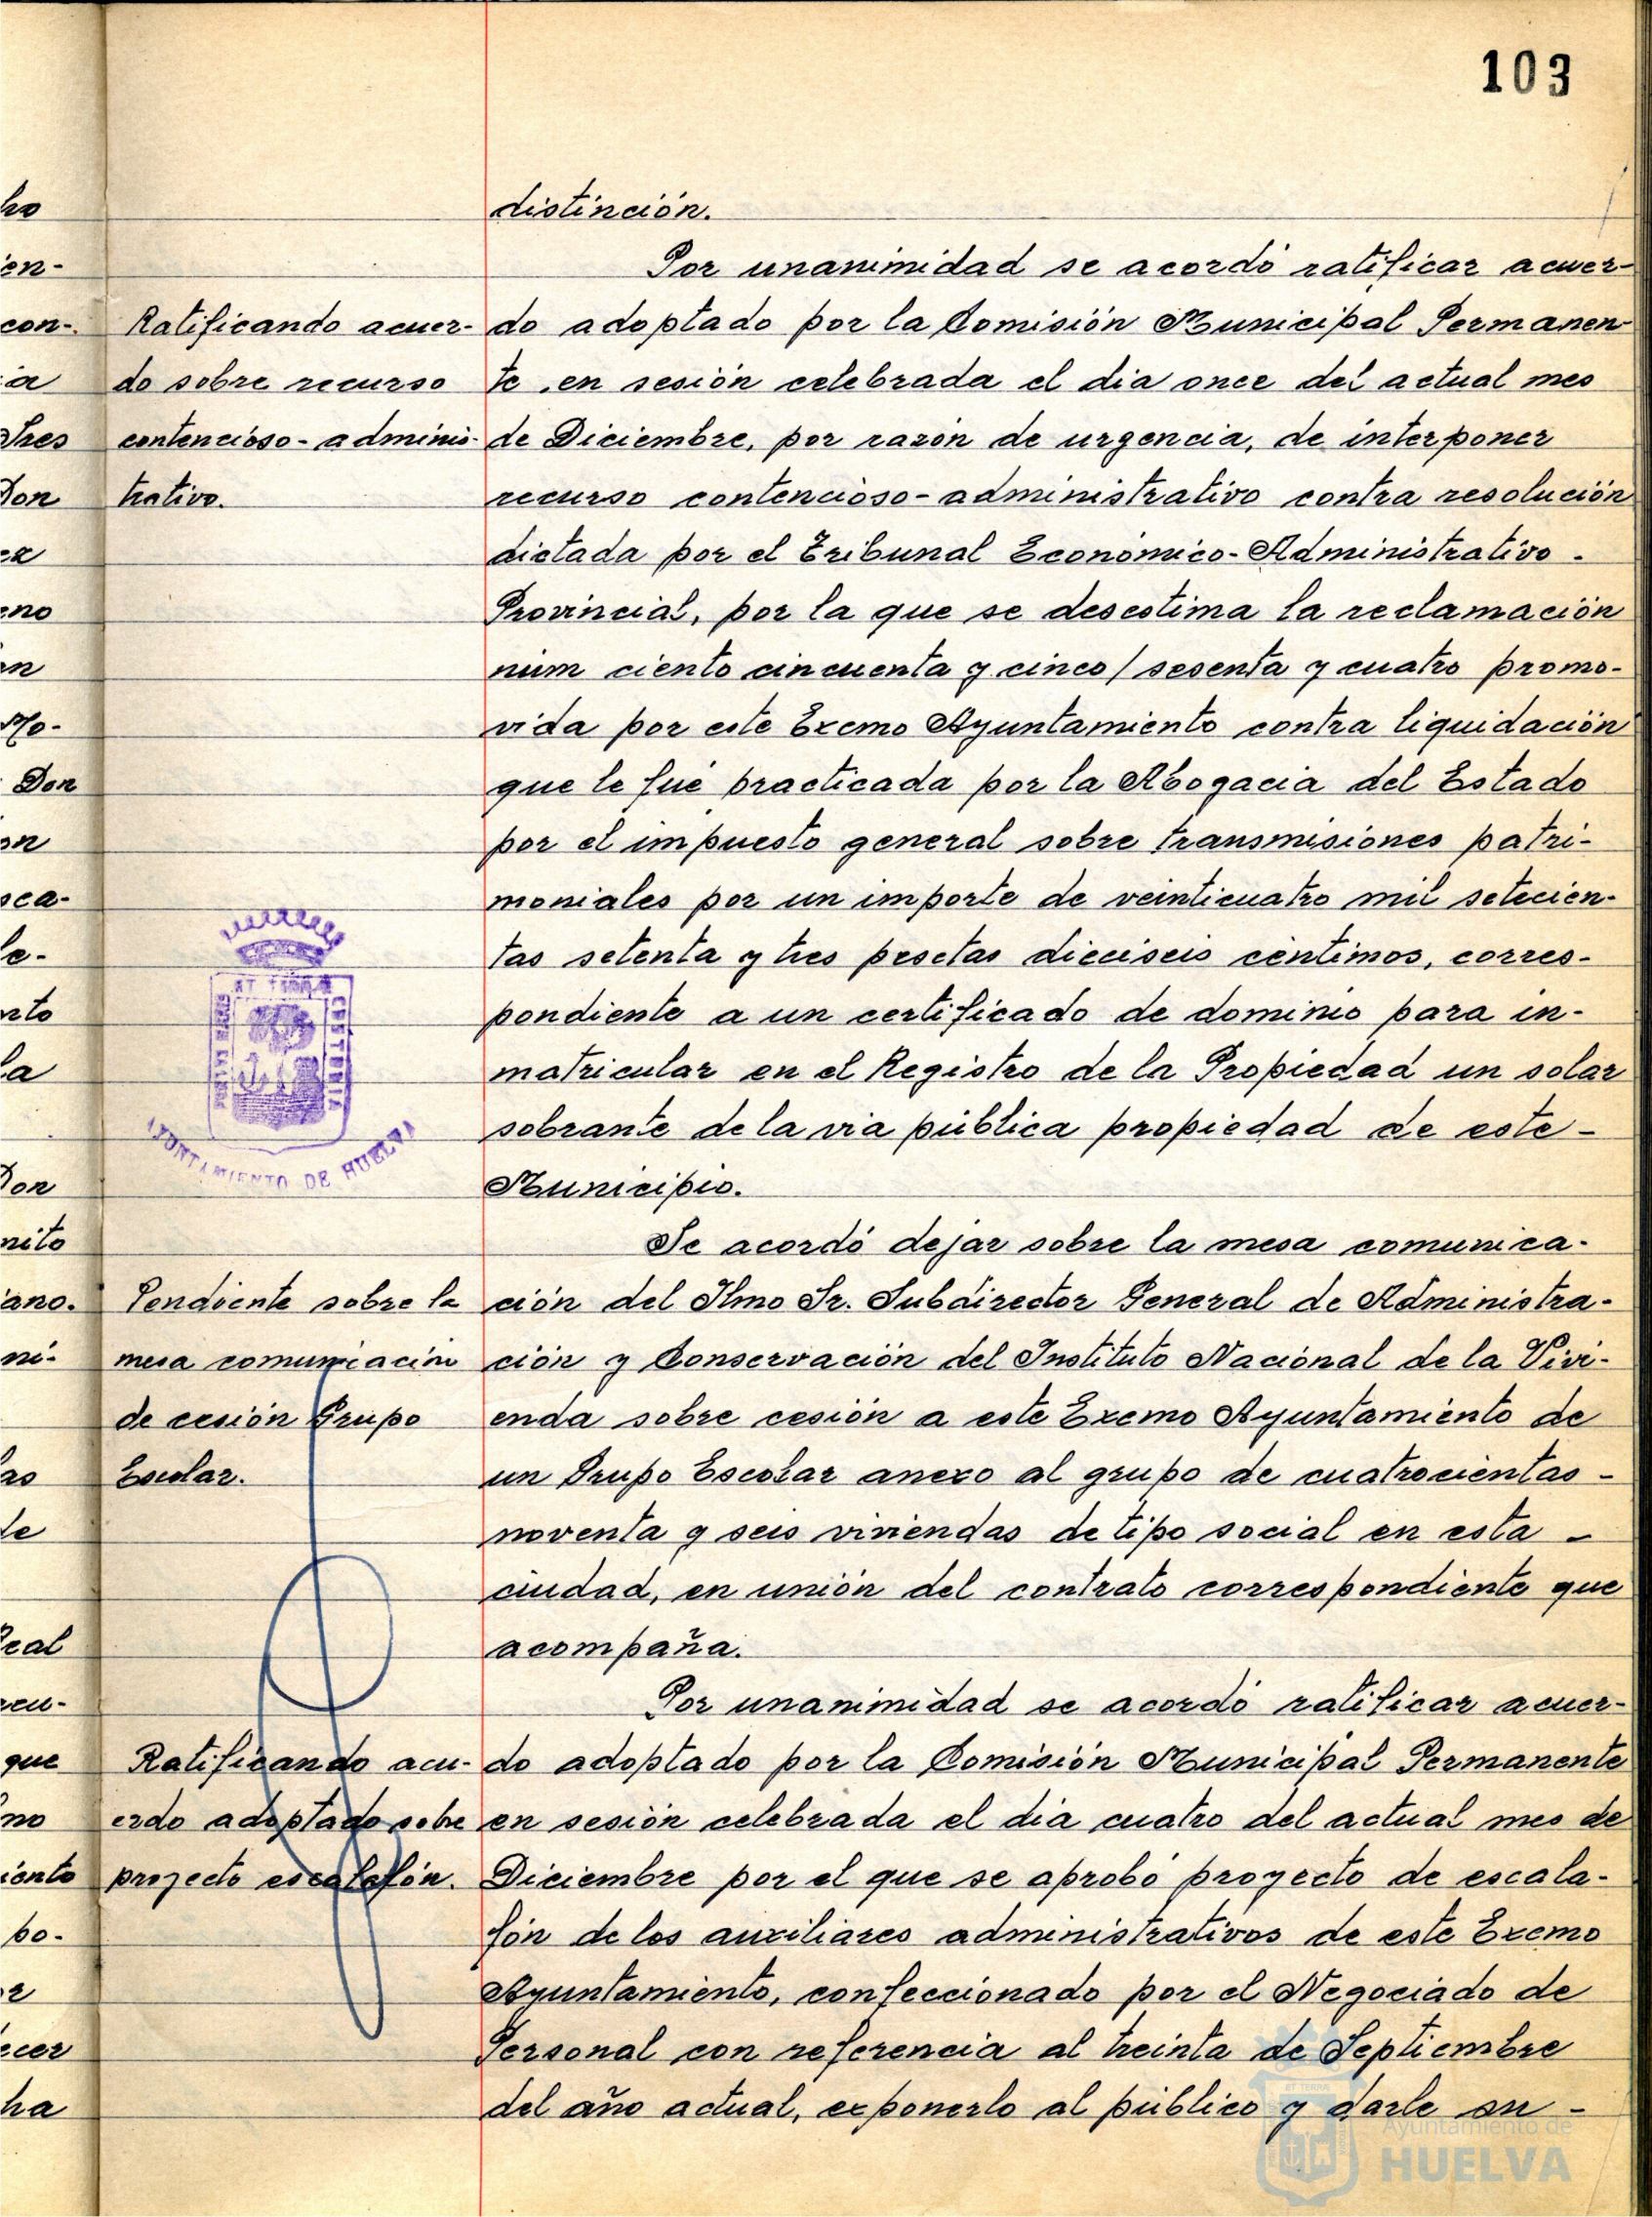 103
distinción.
Por unanimidad se acordó ratificar acuer-
Ratificando acuer- do adoptado por la Comisión Municipal Permanen
do sobre recurso te, en sesión celebrada el dia once del actual mes
contencioso-adminis- de Diciembre, por razón de urgencia, de interponer
trativo. recurso contencioso-administrativo contra resolución
dictada por el Tribunal Económico-Administrativo -
Provincial, por la que se desestima la reclamación
núm ciento cincuenta y cinco/sesenta y cuatro promo-
vida por este Excmo Ayuntamiento contra liquidación
que le fué practicada por la Abogacia del Estado
por el impuesto general sobre transmisiones patri-
moniales por un importe de veinticuatro mil setecien-
tas setenta y tres pesetas dieciseis céntimos, corres-
pondiente a un certificado de dominio para in-
matricular en el Registro de la Propiedad un solar
sobrante de la via pública propiedad de este -
Municipio.
AYUNTAMIENTO DE HUELVA
Se acordó dejar sobre la mesa comunica-
Pendiente sobre la ción del Ilmo Sr. Subdirector General de Administra-
mesa comunicación ción y Conservación del Instituto Nacional de la Vivi-
de cesión Grupo enda sobre cesión a este Excmo Ayuntamiento de
Escolar. un Grupo Escolar anexo al grupo de cuatrocientas -
noventa y seis viviendas de tipo social en esta -
ciudad, en unión del contrato correspondiente que
acompaña.
Por unanimidad se acordó ratificar acuer-
Ratificando acu- do adoptado por la Comisión Municipal Permanente
erdo adoptado sobre en sesión celebrada el dia cuatro del actual mes de
proyecto escalafón. Diciembre por el que se aprobó proyecto de escala-
fón de los auxiliares administrativos de este Excmo
Ayuntamiento, confeccionado por el Negociado de
Personal con referencia al treinta de Septiembre
del año actual, exponerlo al público y darle su -
Ayuntamiento de
HUELVA